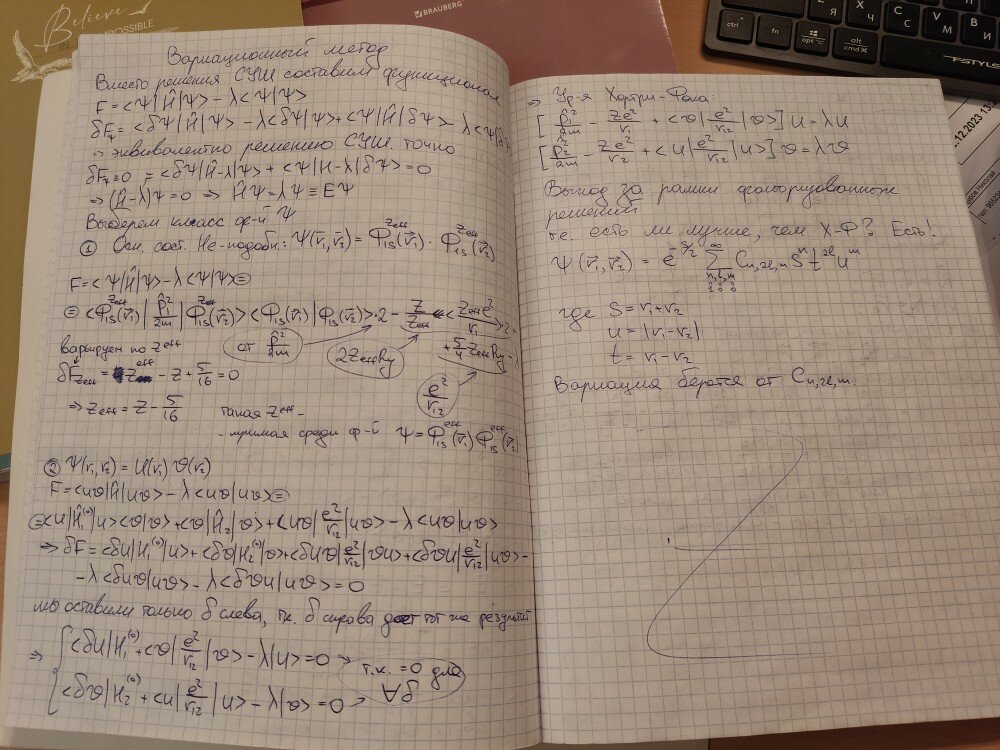 Believe
IN IMPOSSIBLE
BRAUBERG
ctrl
fn
opt
alt
cmd ⌘
Z Я
X Ч
C С
V М
B И
FSTYLE
.12.2023
Вариационный метод
Вместо решения СУШ составим функционал
F = <Ψ|Ĥ|Ψ> - λ<Ψ|Ψ>
δF_Ψ = <δΨ|Ĥ|Ψ> - λ<δΨ|Ψ> + <Ψ|Ĥ|δΨ> - λ<Ψ|δ
⇒ эквивалентно решению СУШ точно
δF_Ψ = 0 = <δΨ|Ĥ-λ|Ψ> + <Ψ|H-λ|δΨ> = 0
⇒ (Ĥ-λ)Ψ = 0 ⇒ ĤΨ = λΨ ≡ EΨ
Выберем класс ф-й Ψ
① Осн. сост. He-подобн.: Ψ(r⃗₁, r⃗₂) = Φ_{1S}^{Zeff}(r⃗₁) · Φ_{1S}^{Zeff}(r⃗₂)
F = <Ψ|Ĥ|Ψ> - λ<Ψ|Ψ> =
= <Φ_{1S}^{Zeff}(r⃗₁)| p̂²/2m |Φ_{1S}^{Zeff}(r⃗₂)> <Φ_{1S}(r⃗₁)|Φ_{1S}(r⃗₂)> · 2 - Z/Zeff <Zeff e²/r₁> 2 -
от p̂²/2m
2Zeff Ry
+ 5/4 Zeff Ry -
e²/r₁₂
варьируем по Zeff
δF_{Zeff} = Zeff - Z + 5/16 = 0
⇒ Zeff = Z - 5/16
такая Zeff -
среди ф-й Ψ = Φ_{1S}^{eff}(r⃗₁) Φ_{1S}^{eff}(r⃗₂)
② Ψ(r₁, r₂) = U(r₁) ϑ(r₂)
F = <uϑ|Ĥ|uϑ> - λ<uϑ|uϑ> =
= <u|Ĥ₁⁽⁰⁾|u><ϑ|ϑ> + <ϑ|Ĥ₂|ϑ> + <uϑ|e²/r₁₂|uϑ> - λ<uϑ|uϑ>
⇒ δF = <δu|H₁⁽⁰⁾|u> + <δϑ|H₂⁽⁰⁾|ϑ> + <δuϑ|e²/r₁₂|ϑu> + <δϑu|e²/r₁₂|uϑ> -
- λ<δuϑ|uϑ> - λ<δϑu|uϑ> = 0
мы оставили только δ слева, т.к. δ справа даст тот же результат
⇒ { <δu|H₁⁽⁰⁾ + <ϑ|e²/r₁₂|ϑ> - λ|u> = 0
<δϑ|H₂⁽⁰⁾ + <u|e²/r₁₂|u> - λ|ϑ> = 0
т.к. = 0 для
∀δ
⇒ Ур-я Хартри-Фока:
[p̂₁²/2m - Ze²/r₁ + <ϑ|e²/r₁₂|ϑ>] u = λu
[p̂₂²/2m - Ze²/r₂ + <u|e²/r₁₂|u>] ϑ = λϑ
Выход за рамки факторизованных
решений
т.е. есть ли лучше, чем Х-Ф? Есть!
Ψ(r⃗₁, r⃗₂) = e^{-s/2} ∑_{n,l,m=0}^{∞} C_{n,2l,m} Sⁿ t^{2l} u^m
где S = r₁ + r₂
u = |r₁ - r₂|
t = r₁ - r₂
Вариация берётся от C_{n,2l,m}.